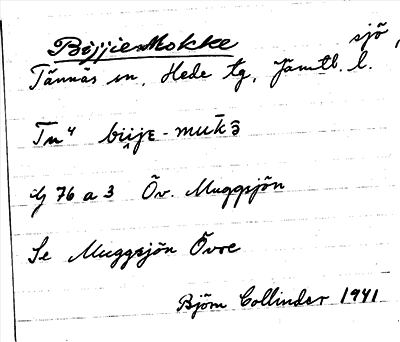 BijjieMokke sjö,
Tännäs sn, Hede tg, Jämtl. l.
Tnⁿ bi̮i̮jᴇ - muk̄ə̑
G 76 a 3 Öv. Muggsjön
Se Muggsjön Övre
Björn Collinder 1941